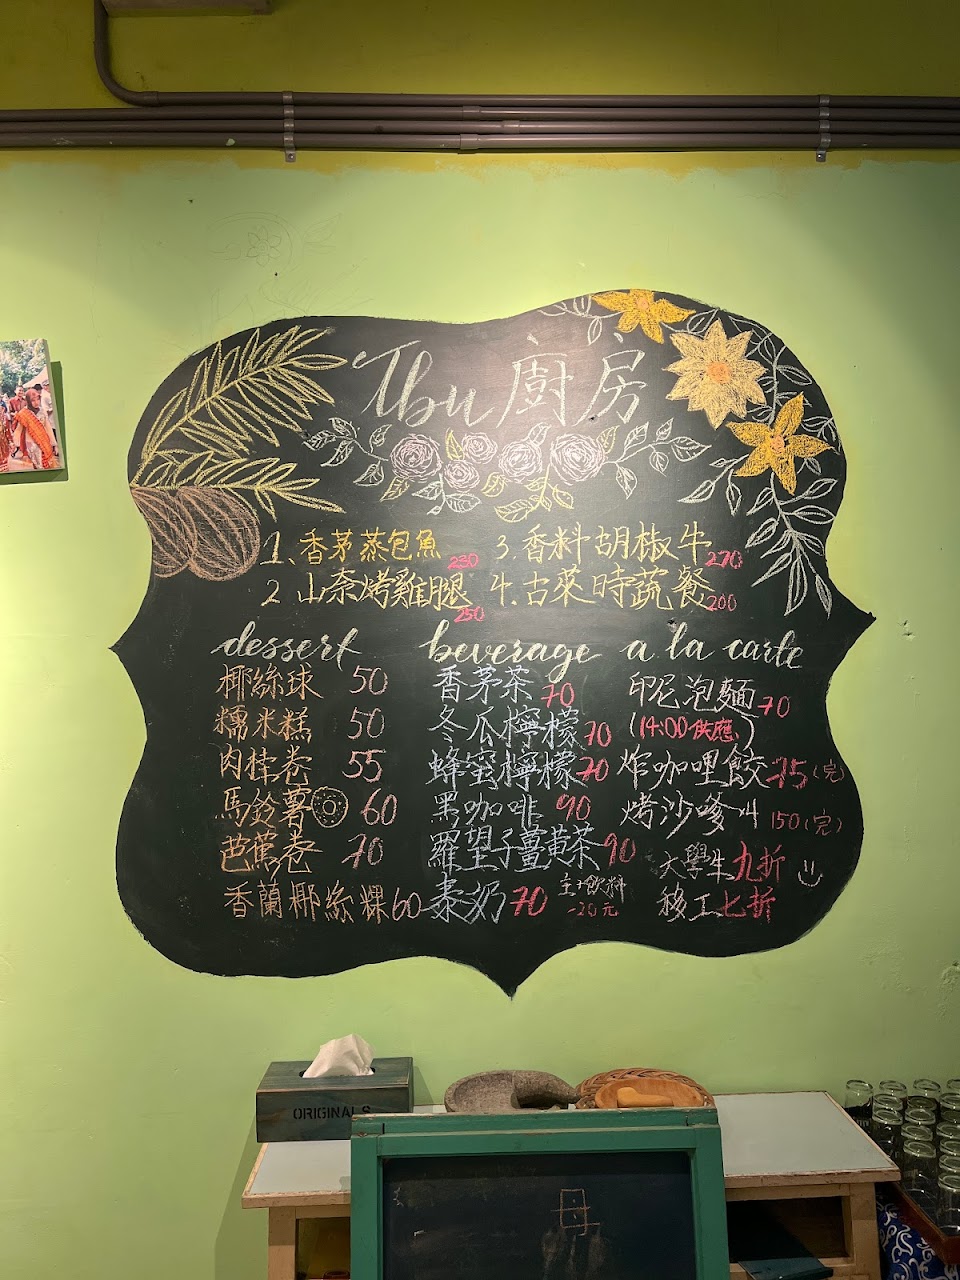 Ibu 廚房
1、香茅蒸包魚 230
3.香料胡椒牛 270
2.山奈烤雞腿 250
4.古菜時蔬餐 200
dessert
椰絲球 50
糯米糕 50
肉桂卷 55
馬鈴薯 60
芭蕉卷 70
香蘭椰絲粿 60
beverage
香茅茶 70
冬瓜檸檬 70
蜂蜜檸檬 70
黑咖啡 90
羅望子薑黃茶 90
泰奶 70
主+飲料
-20元
a la carte
印尼泡麵 70
(14:00供應)
炸咖哩餃 75(完)
烤沙嗲4 150(完)
大學生九折
移工七折
ORIGINALS
母